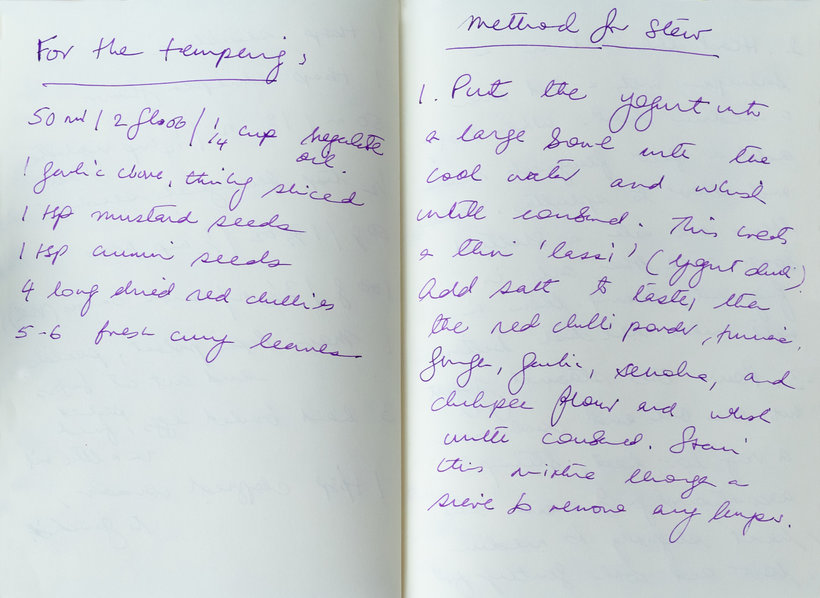 For the tempering;
50 ml / 2 fl oz / 1/4 cup vegetable
oil.
1 garlic clove, thinly sliced
1 tsp mustard seeds
1 tsp cumin seeds
4 long dried red chillies
5-6 fresh curry leaves
Method for Stew
1. Put the yogurt into
a large bowl with the
cool water and whisk
until combined. This creates
a thin 'lassi' (yogurt drink)
Add salt to taste, then
the red chilli powder, turmeric,
ginger, garlic, and
chickpea flour and whisk
until combined. Strain
this mixture through a
sieve to remove any lumps.